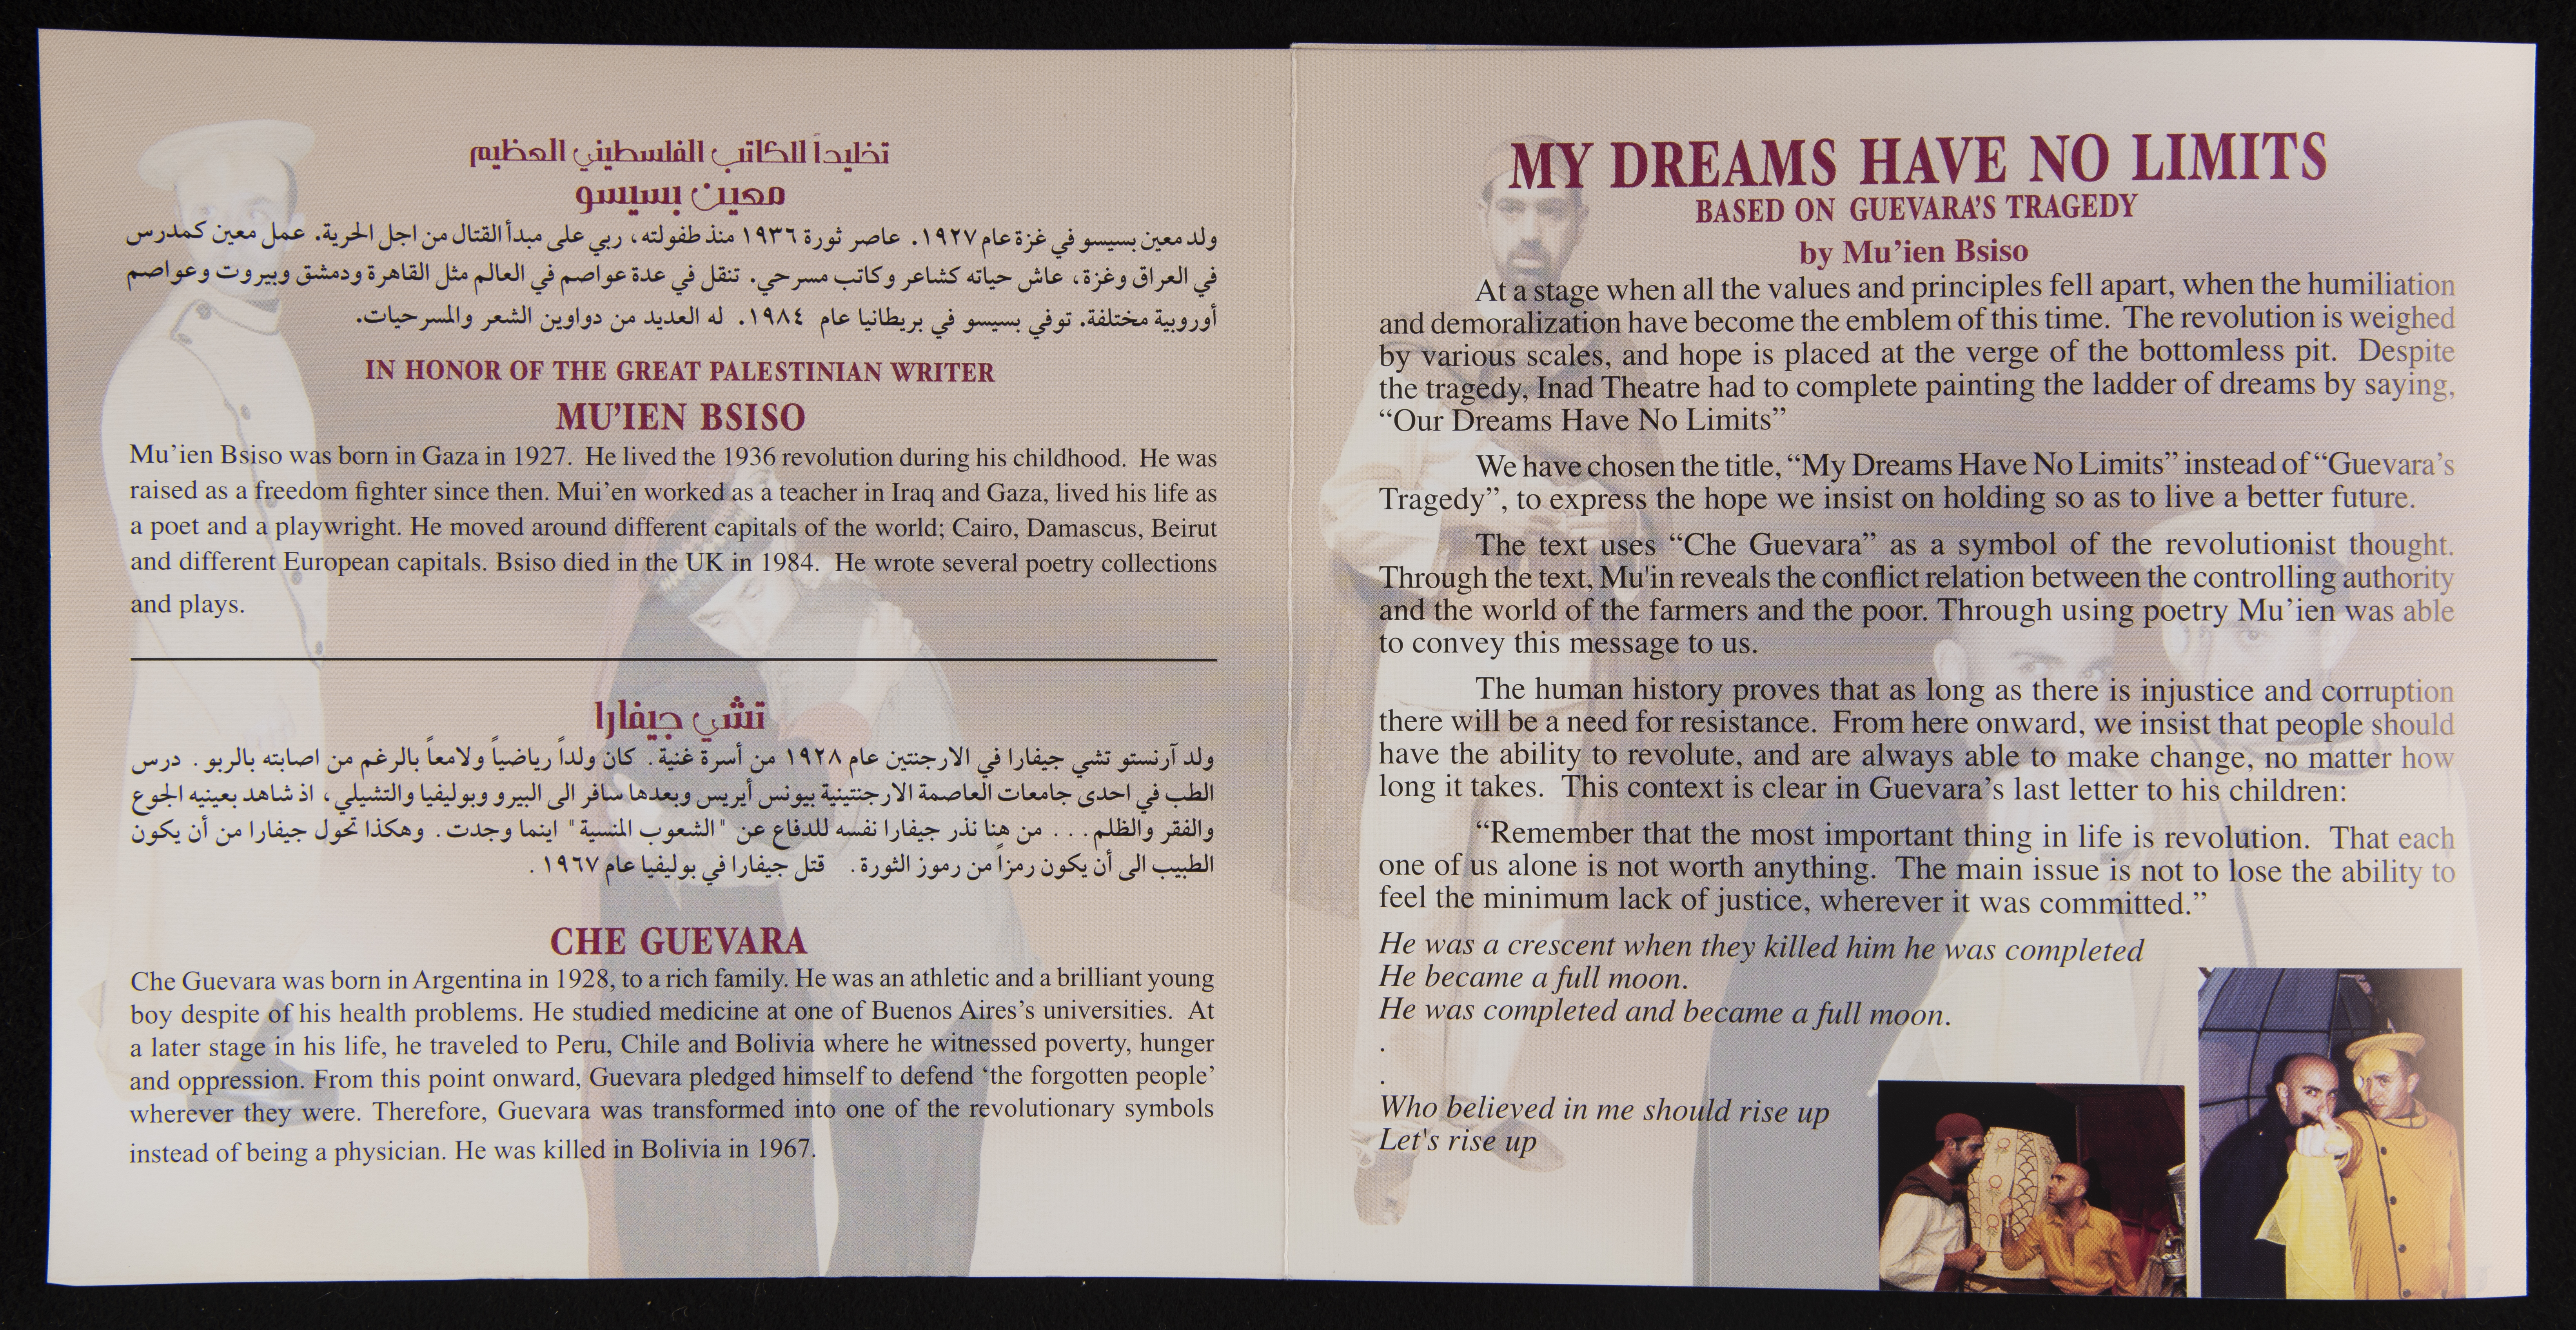 تخليداً للكاتب الفلسطيني العظيم
معين بسيسو
ولد معين بسيسو في غزة عام ١٩٢٧. عاصر ثورة ١٩٣٦ منذ طفولته، ربي على مبدأ القتال من اجل الحرية. عمل معين كمدرس
في العراق وغزة، عاش حياته كشاعر وكاتب مسرحي. تنقل في عدة عواصم في العالم مثل القاهرة ودمشق وبيروت وعواصم
أوروبية مختلفة. توفي بسيسو في بريطانيا عام ١٩٨٤. له العديد من دواوين الشعر والمسرحيات.
IN HONOR OF THE GREAT PALESTINIAN WRITER
MU'IEN BSISO
Mu'ien Bsiso was born in Gaza in 1927. He lived the 1936 revolution during his childhood. He was
raised as a freedom fighter since then. Mui'en worked as a teacher in Iraq and Gaza, lived his life as
a poet and a playwright. He moved around different capitals of the world; Cairo, Damascus, Beirut
and different European capitals. Bsiso died in the UK in 1984. He wrote several poetry collections
and plays.
تشي جيفارا
ولد آرنستو تشي جيفارا في الارجنتين عام ١٩٢٨ من أسرة غنية. كان ولداً رياضياً ولامعاً بالرغم من اصابته بالربو. درس
الطب في احدى جامعات العاصمة الارجنتينية بيونس أيريس وبعدها سافر الى البيرو وبوليفيا والتشيلي، اذ شاهد بعينيه الجوع
والفقر والظلم... من هنا نذر جيفارا نفسه للدفاع عن "الشعوب المنسية" اينما وجدت. وهكذا تحول جيفارا من أن يكون
الطبيب الى أن يكون رمزاً من رموز الثورة. قتل جيفارا في بوليفيا عام ١٩٦٧.
CHE GUEVARA
Che Guevara was born in Argentina in 1928, to a rich family. He was an athletic and a brilliant young
boy despite of his health problems. He studied medicine at one of Buenos Aires's universities. At
a later stage in his life, he traveled to Peru, Chile and Bolivia where he witnessed poverty, hunger
and oppression. From this point onward, Guevara pledged himself to defend 'the forgotten people'
wherever they were. Therefore, Guevara was transformed into one of the revolutionary symbols
instead of being a physician. He was killed in Bolivia in 1967.
MY DREAMS HAVE NO LIMITS
BASED ON GUEVARA'S TRAGEDY
by Mu'ien Bsiso
At a stage when all the values and principles fell apart, when the humiliation
and demoralization have become the emblem of this time. The revolution is weighed
by various scales, and hope is placed at the verge of the bottomless pit. Despite
the tragedy, Inad Theatre had to complete painting the ladder of dreams by saying,
"Our Dreams Have No Limits"
We have chosen the title, "My Dreams Have No Limits" instead of "Guevara's
Tragedy", to express the hope we insist on holding so as to live a better future.
The text uses "Che Guevara" as a symbol of the revolutionist thought.
Through the text, Mu'in reveals the conflict relation between the controlling authority
and the world of the farmers and the poor. Through using poetry Mu'ien was able
to convey this message to us.
The human history proves that as long as there is injustice and corruption
there will be a need for resistance. From here onward, we insist that people should
have the ability to revolute, and are always able to make change, no matter how
long it takes. This context is clear in Guevara's last letter to his children:
"Remember that the most important thing in life is revolution. That each
one of us alone is not worth anything. The main issue is not to lose the ability to
feel the minimum lack of justice, wherever it was committed."
He was a crescent when they killed him he was completed
He became a full moon.
He was completed and became a full moon.
.
.
Who believed in me should rise up
Let's rise up